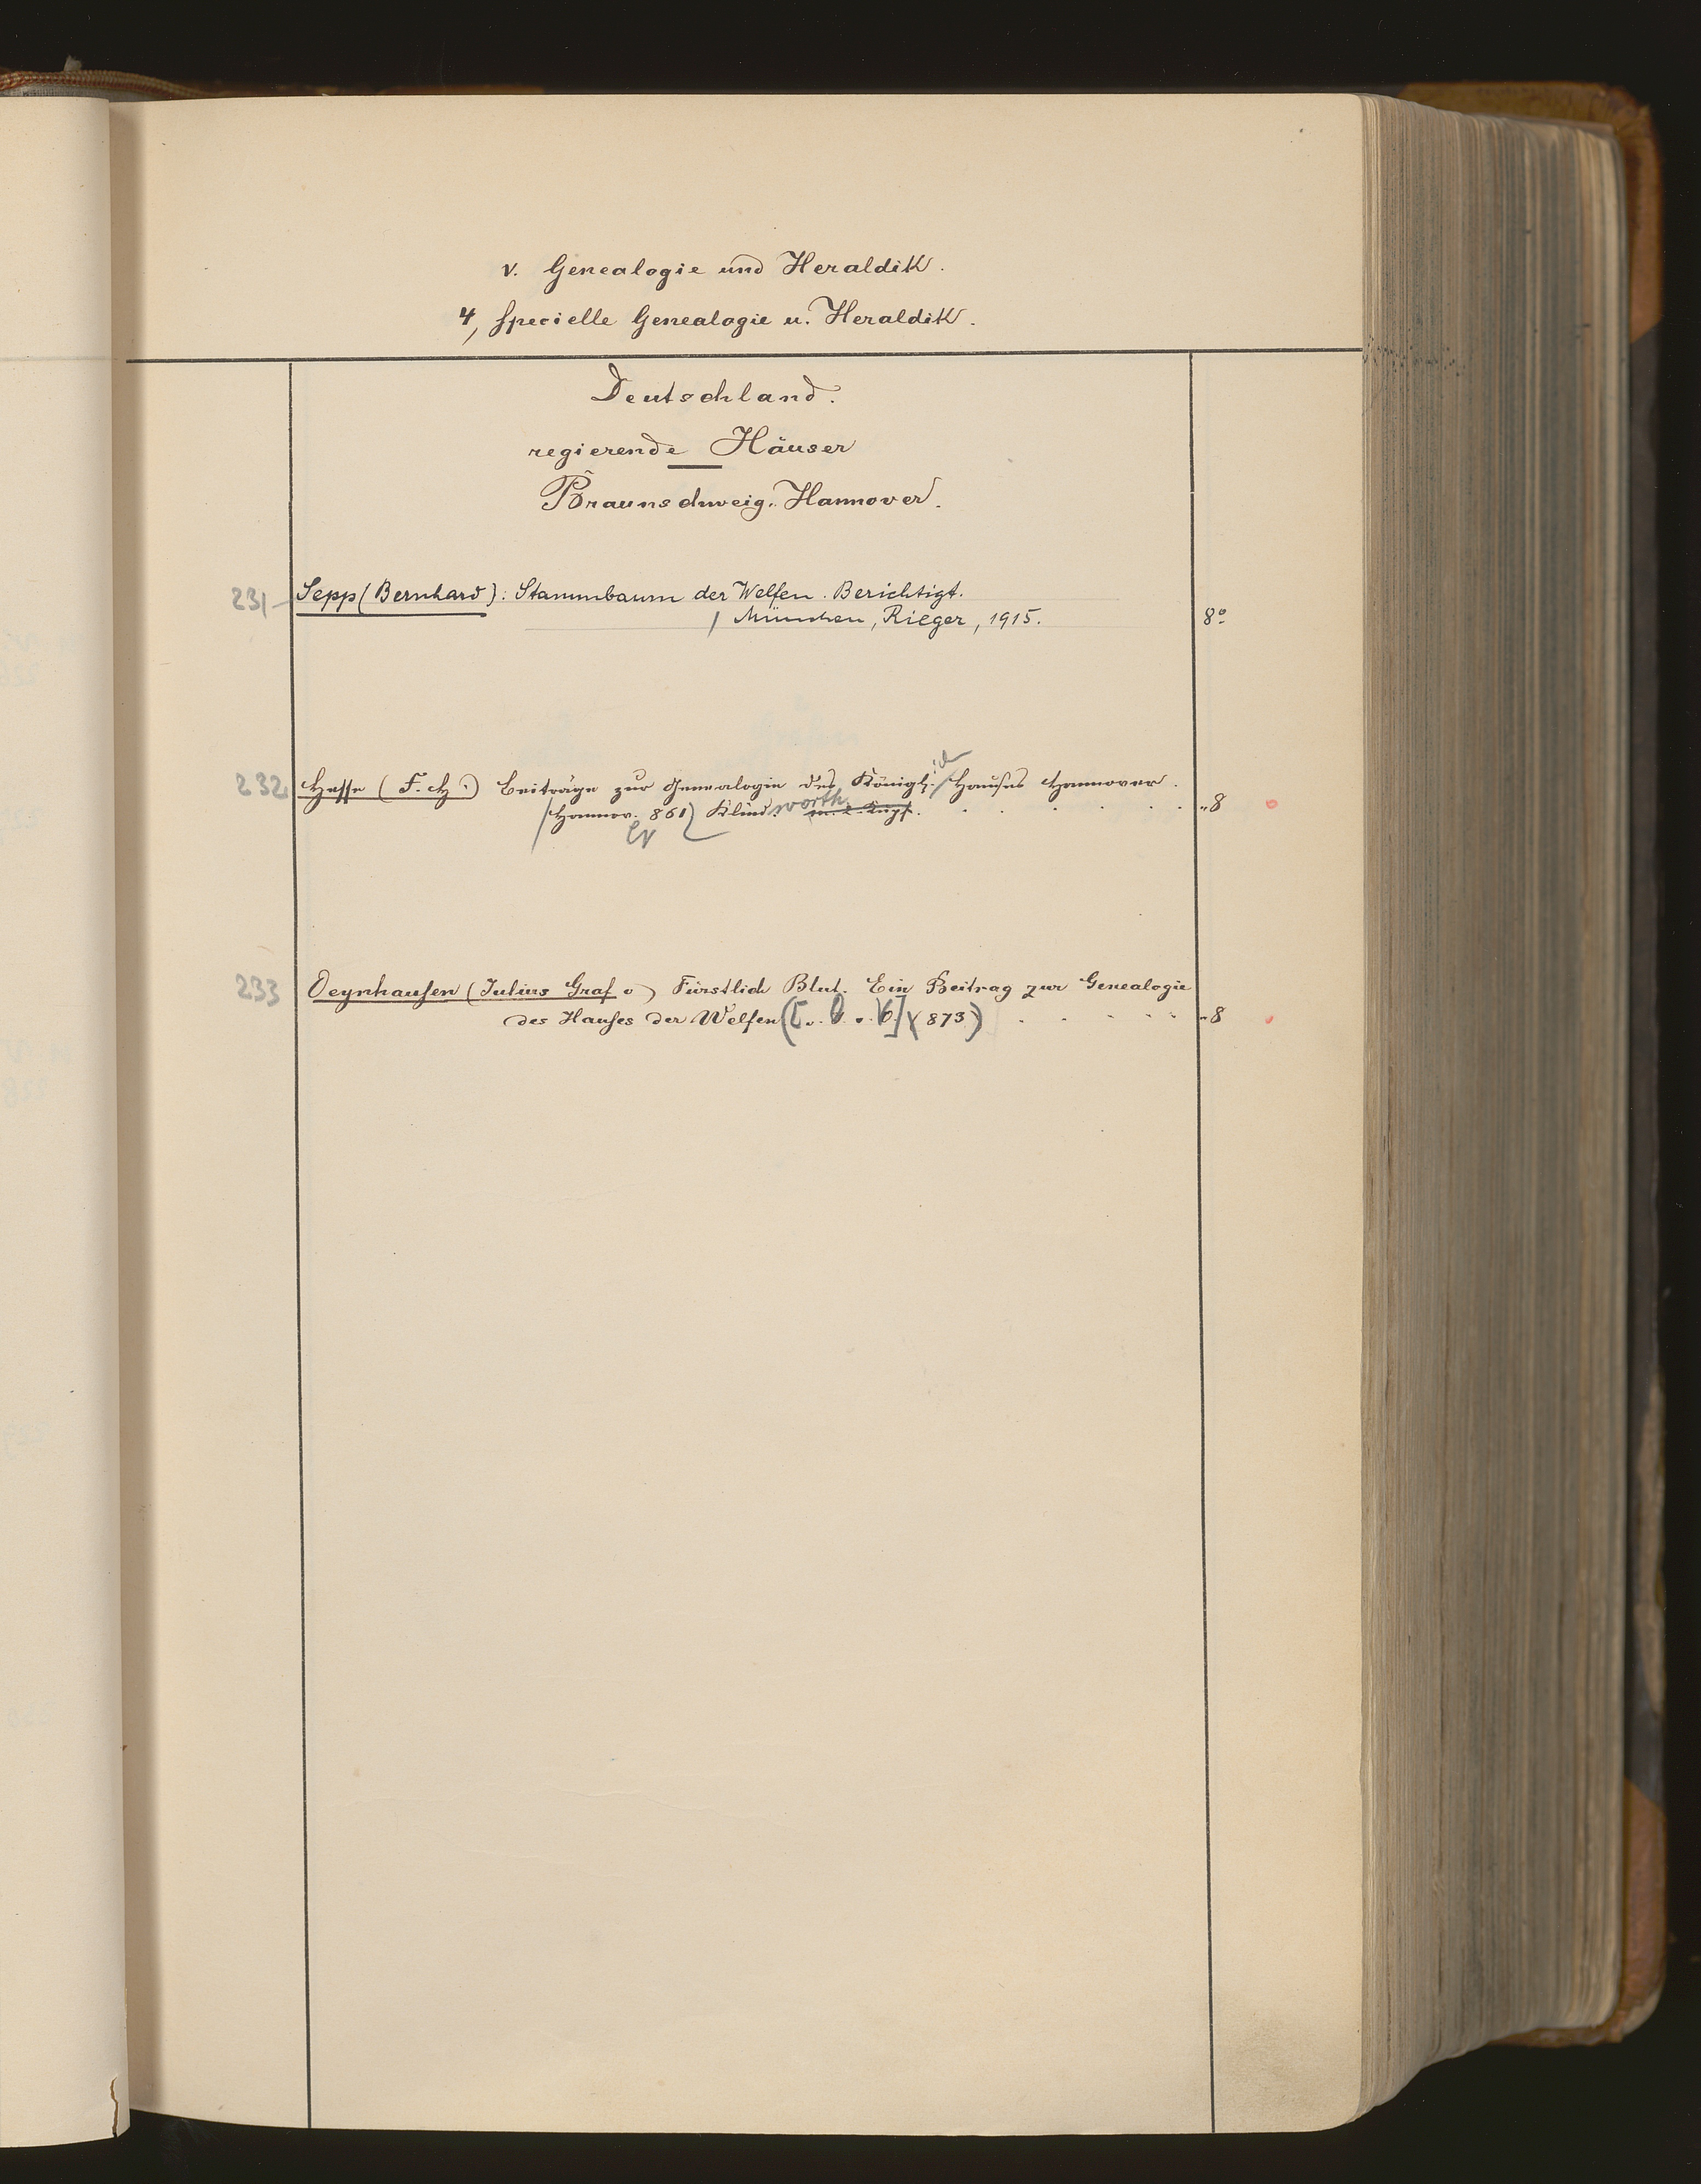 V. Genealogie und Heraldik.
4, specielle Genealogie u. Heraldik.
Deutschland.
regierende Häuser
Braunschweig-Hannover.
231 Sepp (Bernhard): Stammbaum der Welfen. Berichtigt.
/ München, Rieger, 1915. 8º
232 Hesse (F. H.) Beiträge zur Genealogie des Königl. Hauses Hannover.
/Hannov. 861) Klindworth. "8
233 Oeynhausen (Julius Graf v) Fürstlich Blut. Ein Beitrag zur Genealogie
des Hauses der Welfen ([o. O. o. V.] (873) "8